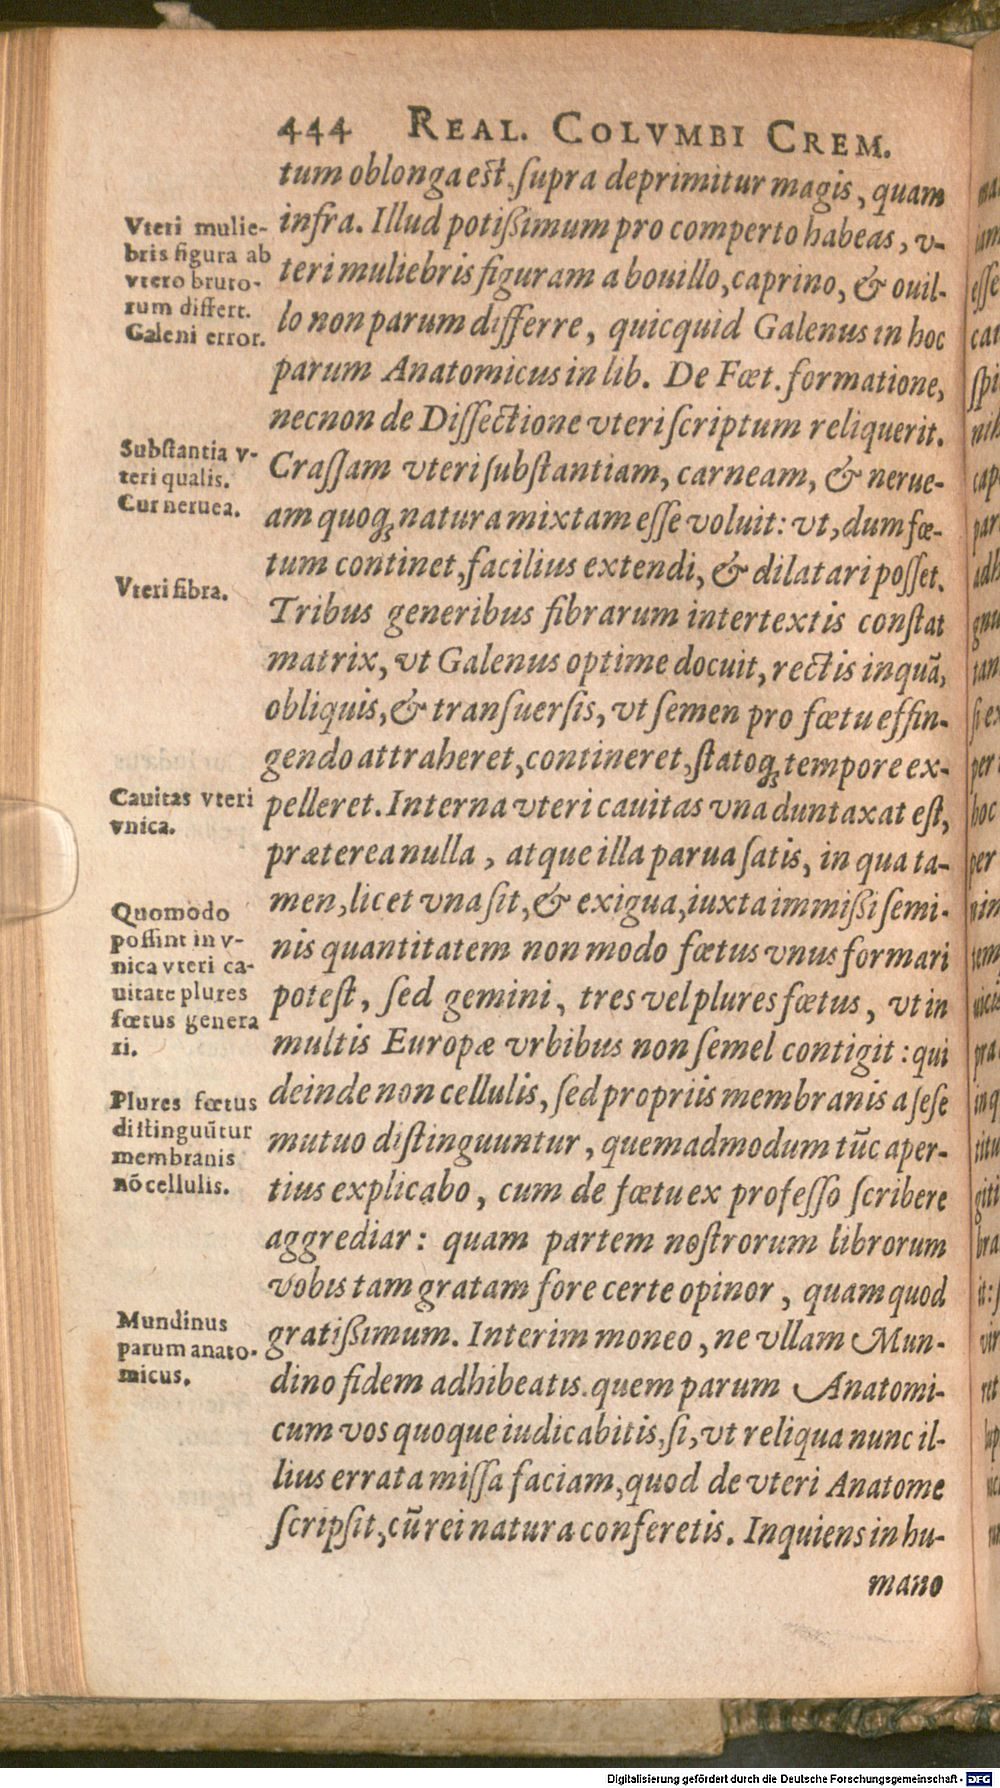 444 REAL. COLVMBI CREM.
tum oblonga est, supra deprimitur magis, quam
infra. Illud potißimum pro comperto habeas, v-
teri muliebris figuram a bouillo, caprino, & ouil-
lo non parum differre, quicquid Galenus in hoc
parum Anatomicus in lib. De Fœt. formatione,
necnon de Dissectione vteri scriptum reliquerit.
Crassam vteri substantiam, carneam, & nerue-
am quoqꝫ natura mixtam esse voluit: vt, dum fœ-
tum continet, facilius extendi, & dilatari posset.
Tribus generibus fibrarum intertextis constat
matrix, vt Galenus optime docuit, rectis inquã,
obliquis, & transuersis, vt semen pro fœtu effin-
gendo attraheret, contineret, statoqꝫ tempore ex-
pelleret. Interna vteri cauitas vna duntaxat est,
præterea nulla, atque illa parua satis, in qua ta-
men, licet vna sit, & exigua, iuxta immißi semi-
nis quantitatem non modo fœtus vnus formari
potest, sed gemini, tres vel plures fœtus, vt in
multis Europæ vrbibus non semel contigit: qui
deinde non cellulis, sed propriis membranis a sese
mutuo distinguuntur, quemadmodum tũc aper-
tius explicabo, cum de fœtu ex professo scribere
aggrediar: quam partem nostrorum librorum
vobis tam gratam fore certe opinor, quam quod
gratißimum. Interim moneo, ne vllam Mun-
dino fidem adhibeatis. quem parum Anatomi-
cum vos quoque iudicabitis, si, vt reliqua nunc il-
lius errata missa faciam, quod de vteri Anatome
scripsit, cũ rei natura conferetis. Inquiens in hu-
mano
Vteri mulie-
bris figura ab
vtero bruto-
rum differt.
Galeni error.
Substantia v-
teri qualis.
Cur neruea.
Vteri fibra.
Cauitas vteri
vnica.
Quomodo
possint in v-
nica vteri ca-
uitate plures
fœtus genera
ri.
Plures fœtus
distinguũtur
membranis
nõ cellulis.
Mundinus
parum anato-
micus.
Digitalisierung gefördert durch die Deutsche Forschungsgemeinschaft - DFG